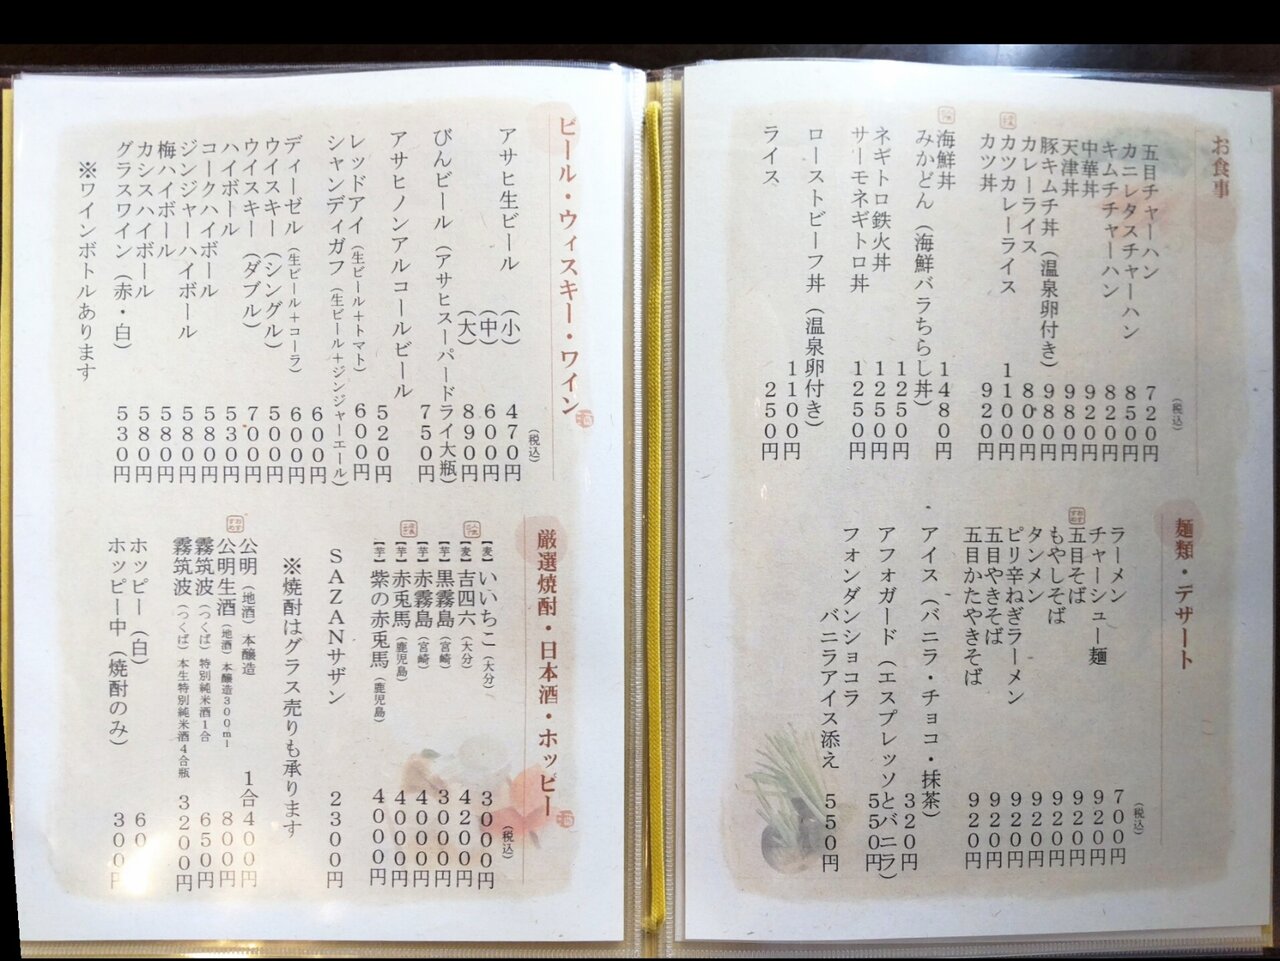 お食事
(税込)
五目チャーハン 720円
カニレタスチャーハン 850円
キムチチャーハン 820円
中華丼 920円
天津丼 980円
豚キムチ丼(温泉卵付き) 980円
カレーライス 800円
カツカレーライス 1100円
カツ丼 920円
海鮮丼 1480円
みかどん(海鮮バラちらし丼) 1250円
ネギトロ鉄火丼 1250円
サーモネギトロ丼 1250円
ローストビーフ丼(温泉卵付き) 1100円
ライス 250円
麺類・デザート
(税込)
ラーメン 700円
チャーシュー麺 920円
おすすめ
五目そば 920円
もやしそば 920円
タンメン 920円
ピリ辛ねぎラーメン 920円
五目やきそば 920円
五目かたやきそば 920円
アイス(バニラ・チョコ・抹茶) 320円
アフォガード(エスプレッソとバニラ) 550円
フォンダンショコラ
バニラアイス添え 550円
ビール・ウィスキー・ワイン
酒
(税込)
アサヒ生ビール (小) 470円
(中) 600円
(大) 890円
びんビール(アサヒスーパードライ大瓶) 750円
アサヒノンアルコールビール 520円
レッドアイ(生ビール+トマト) 600円
シャンディガフ(生ビール+ジンジャーエール) 600円
ディーゼル(生ビール+コーラ) 600円
ウイスキー(シングル) 500円
ウイスキー(ダブル) 700円
ハイボール 530円
コークハイボール 580円
ジンジャーハイボール 580円
梅ハイボール 580円
カシスハイボール 580円
グラスワイン(赤・白) 530円
※ワインボトルあります
厳選焼酎・日本酒・ホッピー
酒
(税込)
【麦】いいちこ(大分) 3000円
【麦】吉四六(大分) 4200円
【芋】黒霧島(宮崎) 3000円
【芋】赤霧島(宮崎) 4000円
【芋】赤兎馬(鹿児島) 4000円
【芋】紫の赤兎馬(鹿児島) 4000円
SAZANサザン 2300円
※焼酎はグラス売りも承ります
公明(地酒)本醸造 1合400円
おすすめ
公明生酒(地酒)本醸造300ml 800円
霧筑波(つくば)特別純米酒1合 650円
霧筑波(つくば)本生特別純米酒4合瓶 3200円
ホッピー(白) 60
ホッピー中(焼酎のみ) 300円